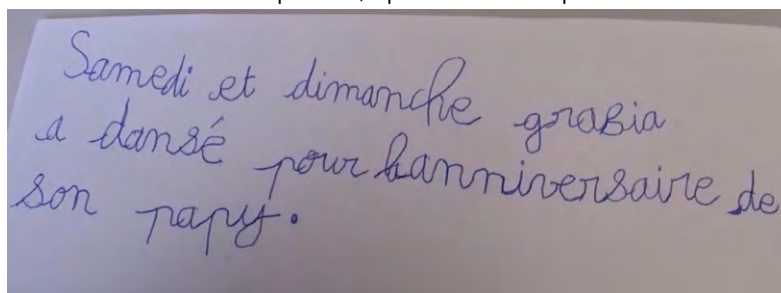 Samedi et dimanche grasia
a dansé pour lanniversaire de
son papy.